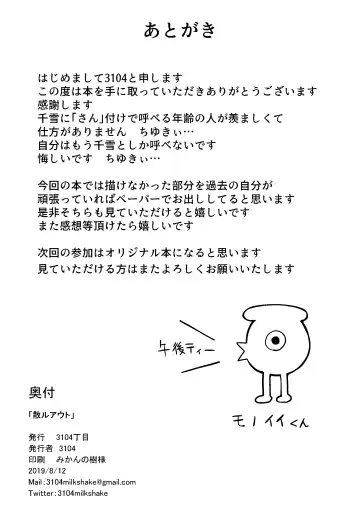 あとがき
はじめまして3104と申します
この度は本を手に取っていただきありがとうございます
感謝します
千雪に「さん」付けで呼べる年齢の人が羨ましくて
仕方がありません　ちゆきぃ…
自分はもう千雪としか呼べないです
悔しいです　ちゆきぃ…
今回の本では描けなかった部分を過去の自分が
頑張っていればペーパーでお出ししてると思います
是非そちらも見ていただけると嬉しいです
また感想等頂けたら嬉しいです
次回の参加はオリジナル本になると思います
見ていただける方はまたよろしくお願いいたします
午後ティー
モノイイくん
奥付
「散ルアウト」
発行　3104丁目
発行者　3104
印刷　みかんの樹様
2019/8/12
Mail:3104milkshake@gmail.com
Twitter:3104milkshake